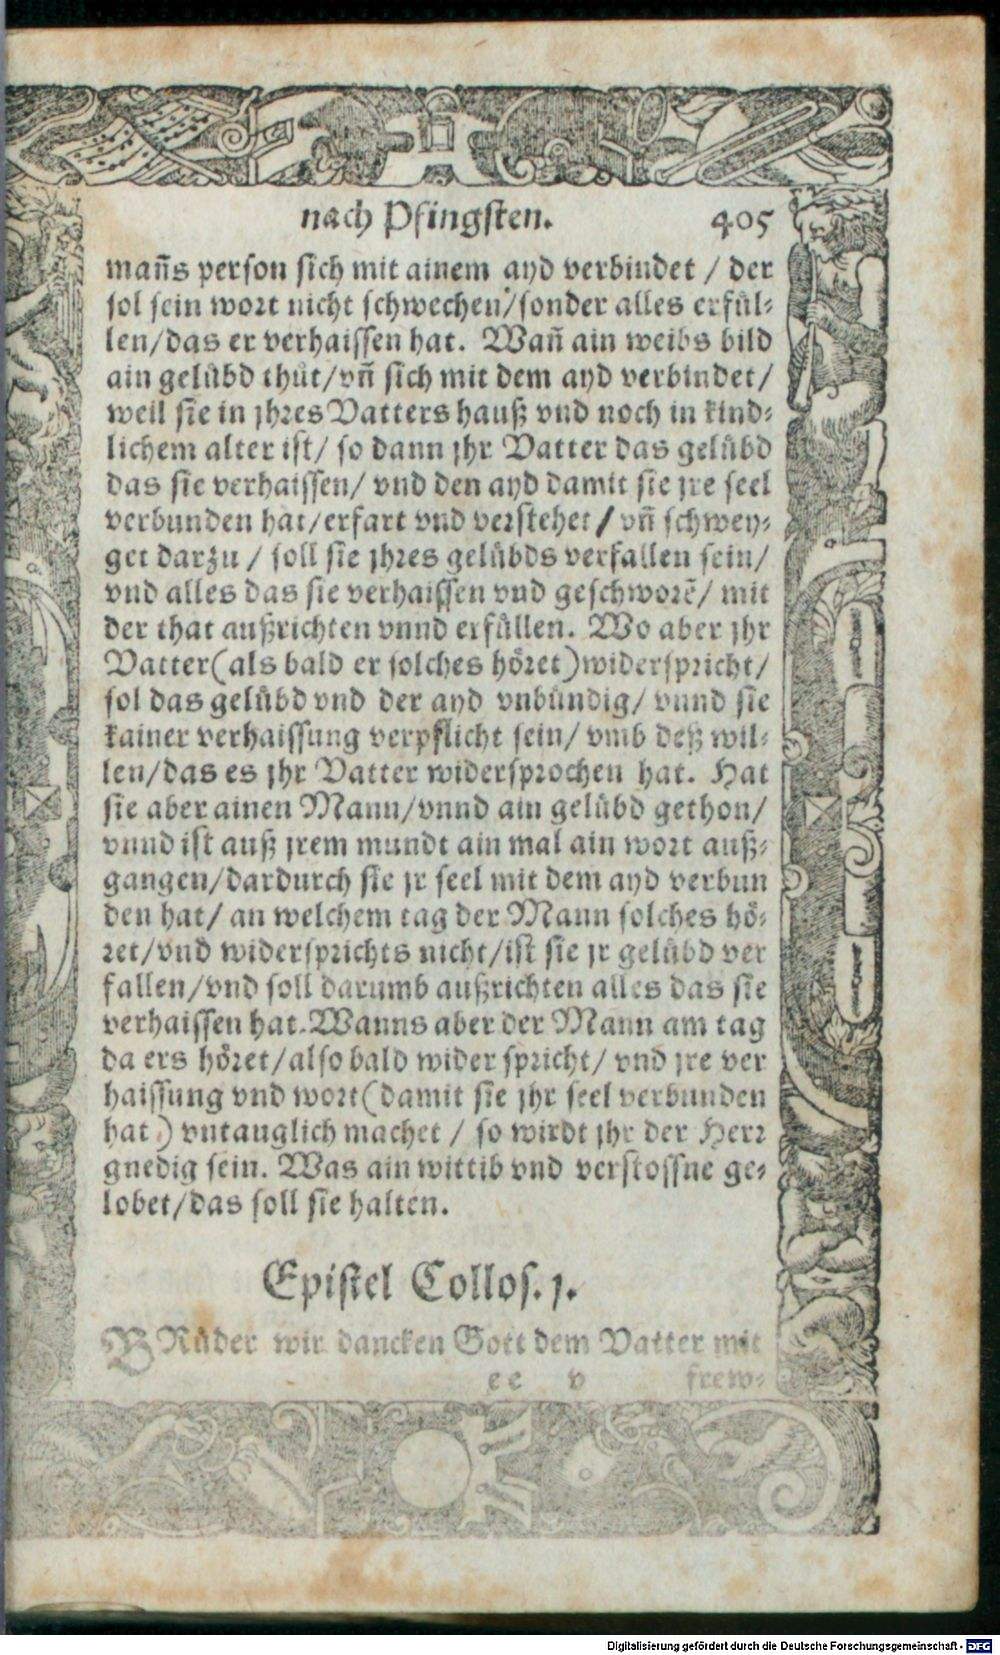 nach Pfingsten. 405
mañs person sich mit ainem ayd verbindet / der
sol sein wort nicht schwechen/sonder alles erfül-
len/das er verhaissen hat. Wañ ain weibs bild
ain gelübd thůt/vñ sich mit dem ayd verbindet/
weil sie in jhres Vatters hauß vnd noch in kind-
lichem alter ist/ so dann jhr Vatter das gelübd
das sie verhaissen/ vnd den ayd damit sie jre seel
verbunden hat/erfart vnd verstehet / vñ schwey-
get darzu / soll sie jhres gelübds verfallen sein/
vnd alles das sie verhaissen vnd geschworẽ/ mit
der that außrichten vnnd erfüllen. Wo aber jhr
Vatter(als bald er solches höret)widerspricht/
sol das gelübd vnd der ayd vnbündig/ vnnd sie
kainer verhaissung verpflicht sein/ vmb deß wil-
len/das es jhr Vatter widersprochen hat. Hat
sie aber ainen Mann/vnnd ain gelübd gethon/
vnnd ist auß jrem mundt ain mal ain wort auß-
gangen/dardurch sie jr seel mit dem ayd verbun
den hat/ an welchem tag der Mann solches hö-
ret/vnd widersprichts nicht/ist sie jr gelübd ver
fallen/vnd soll darumb außrichten alles das sie
verhaissen hat.Wanns aber der Mann am tag
da ers höret/also bald wider spricht/ vnd jre ver
haissung vnd wort(damit sie jhr seel verbunden
hat ) vntauglich machet / so wirdt jhr der Herr
gnedig sein. Was ain wittib vnd verstossne ge-
lobet/das soll sie halten.
Epistel Collos. j.
BRůder wir dancken Gott dem Vatter mit
ee v frew-
Digitalisierung gefördert durch die Deutsche Forschungsgemeinschaft - DFG